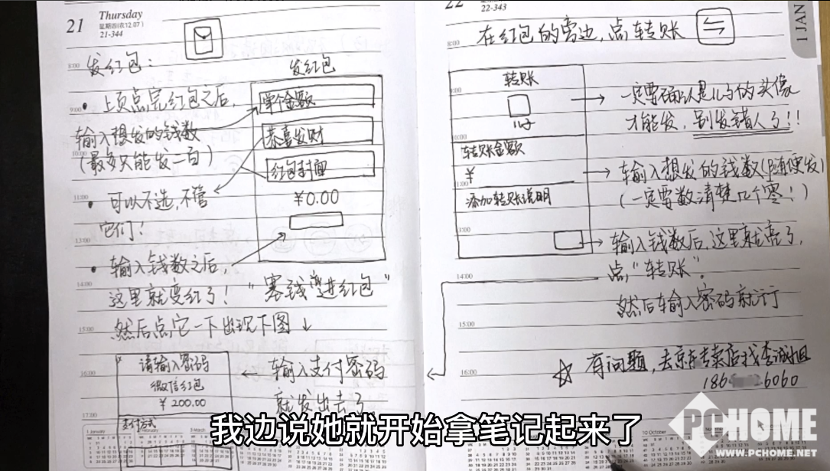 21 Thursday
星期四(农12.07)
21-344
发红包:
· 上页点完红包之后,
输入想发的钱数
(最多只能发二百)
· 可以不选,不管
它们!
· 输入钱数之后,
这里就变红了!"塞钱进红包"
然后点它一下出现下图↓
发红包
单个金额
恭喜发财
红包封面
¥0.00
请输入密码
微信红包
¥200.00
支付方式
← 输入支付密码
就发出去了
22
22-343
1 JAN
在红包的旁边,点转账
转账
儿子
转账金额
¥
添加转账说明
→ 一定要确认是儿子的头像
才能发,别发错人了!!
→ 输入想发的钱数(随便发)
(一定要数清楚几个零!)
→ 输入钱数后,这里就亮了,
点"转账",
然后输入密码就行
☆ 有问题,去京东专卖店找李姐
186 6060
我边说她就开始拿笔记起来了
PCHOME
WWW.PCHOME.NET